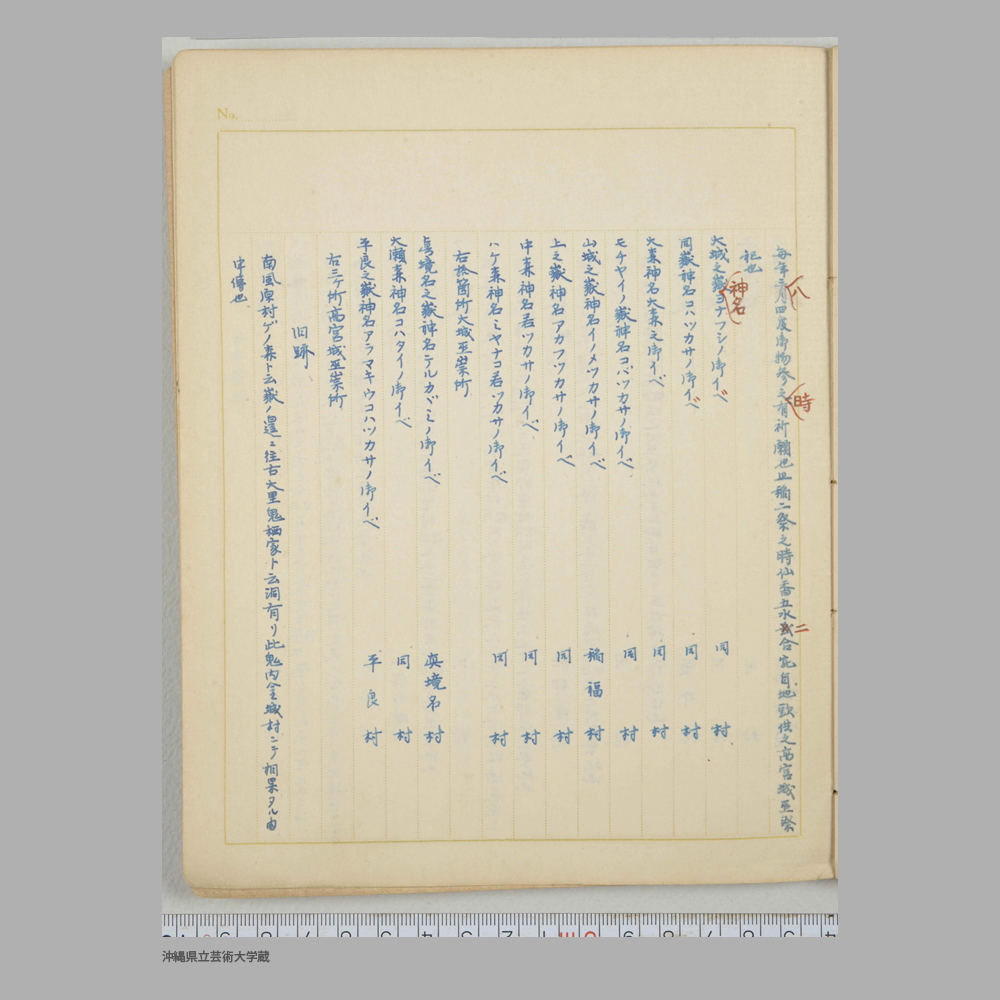 No.
毎年三月四度御物参之有祈願也且稲二祭之時仙香五水弐合完自地頭供之高宮城巫祭
八
時
二
祀也
大城之嶽ヨナフシノ御イベ 同 村
神名
同嶽神名コハツカサノ御イベ 同 村
大森神名大森之御イベ 同 村
モチヤイノ嶽神名コバツカサノ御イベ 同 村
山城之嶽神名イノメツカサノ御イベ 稲福村
上之嶽神名アカフツカサノ御イベ 同 村
中森神名君ツカサノ御イベ 同 村
ハケ森神名ミヤナコ君ツカサノ御イベ 同 村
右拾箇所大城巫崇所
真境名之嶽神名テルカヾミノ御イベ 真境名村
大瀬森神名コハタイノ御イベ 同 村
平良之嶽神名アラマキウコハツカサノ御イベ 平良村
右三ケ所高宮城巫崇所
旧跡
南風原村ゲノ森ト云嶽ノ邊ニ往古大里鬼栖家ト云洞有リ此鬼内金城村ニテ相果タル由
申傳也
沖縄県立芸術大学蔵